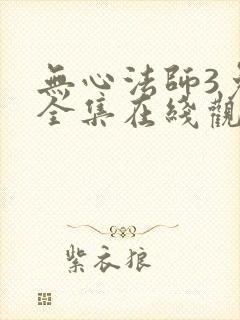 無心法師3
全集在綫觀
紫衣狼